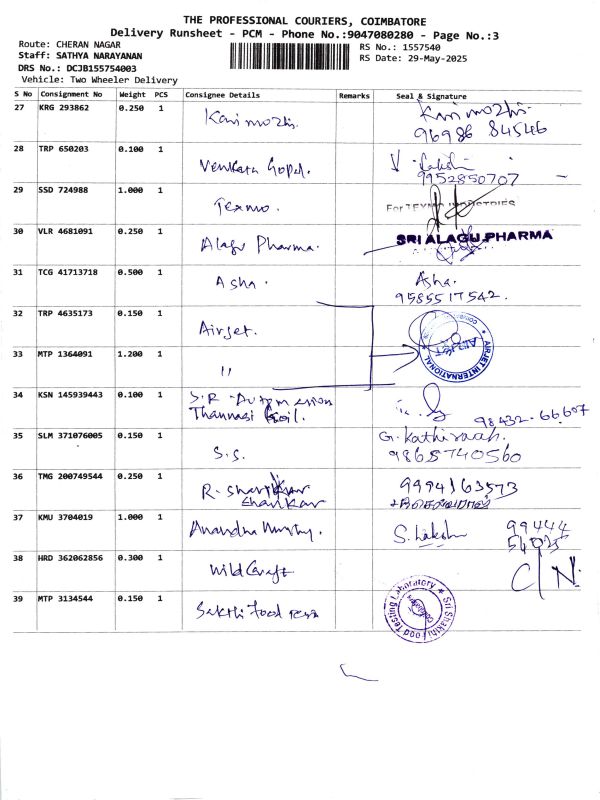 THE PROFESSIONAL COURIERS, COIMBATORE
Delivery Runsheet - PCM - Phone No.:9047080280 - Page No.:3
Route: CHERAN NAGAR
Staff: SATHYA NARAYANAN
DRS No.: DCJB155754003
Vehicle: Two Wheeler Delivery
RS No.: 1557540
RS Date: 29-May-2025
S No Consignment No Weight PCS Consignee Details Remarks Seal & Signature
27 KRG 293862 0.250 1 Kanimozhi. Kanimozhi.
96986 84546
28 TRP 650203 0.100 1 Venkata Gopal. V.
9952850707
29 SSD 724988 1.000 1 Texmo. For TEXMO INDUSTRIES
30 VLR 4681091 0.250 1 Alagu Pharma. SRI ALAGU PHARMA
31 TCG 41713718 0.500 1 Asha. Asha.
9585517542.
32 TRP 4635173 0.150 1 Airjet. AIRJET INTERNATIONAL
COIMBATORE
AIRJET
33 MTP 1364091 1.200 1 "
34 KSN 145939443 0.100 1 S.R. Automation
Thannasi Koil. 98432-66607
35 SLM 371076005 0.150 1 S.S. G. Kathiravan.
9865740560
36 TMG 200749544 0.250 1 R. Shankar 9994163573
37 KMU 3704019 1.000 1 Anandha Murthy. S. Lakshmi 99444
54025
38 HRD 362062856 0.300 1 Wildcraft C/N.
39 MTP 3134544 0.150 1 Sakthi Food Sri Shakthi Food Testing Laboratory
Coimbatore